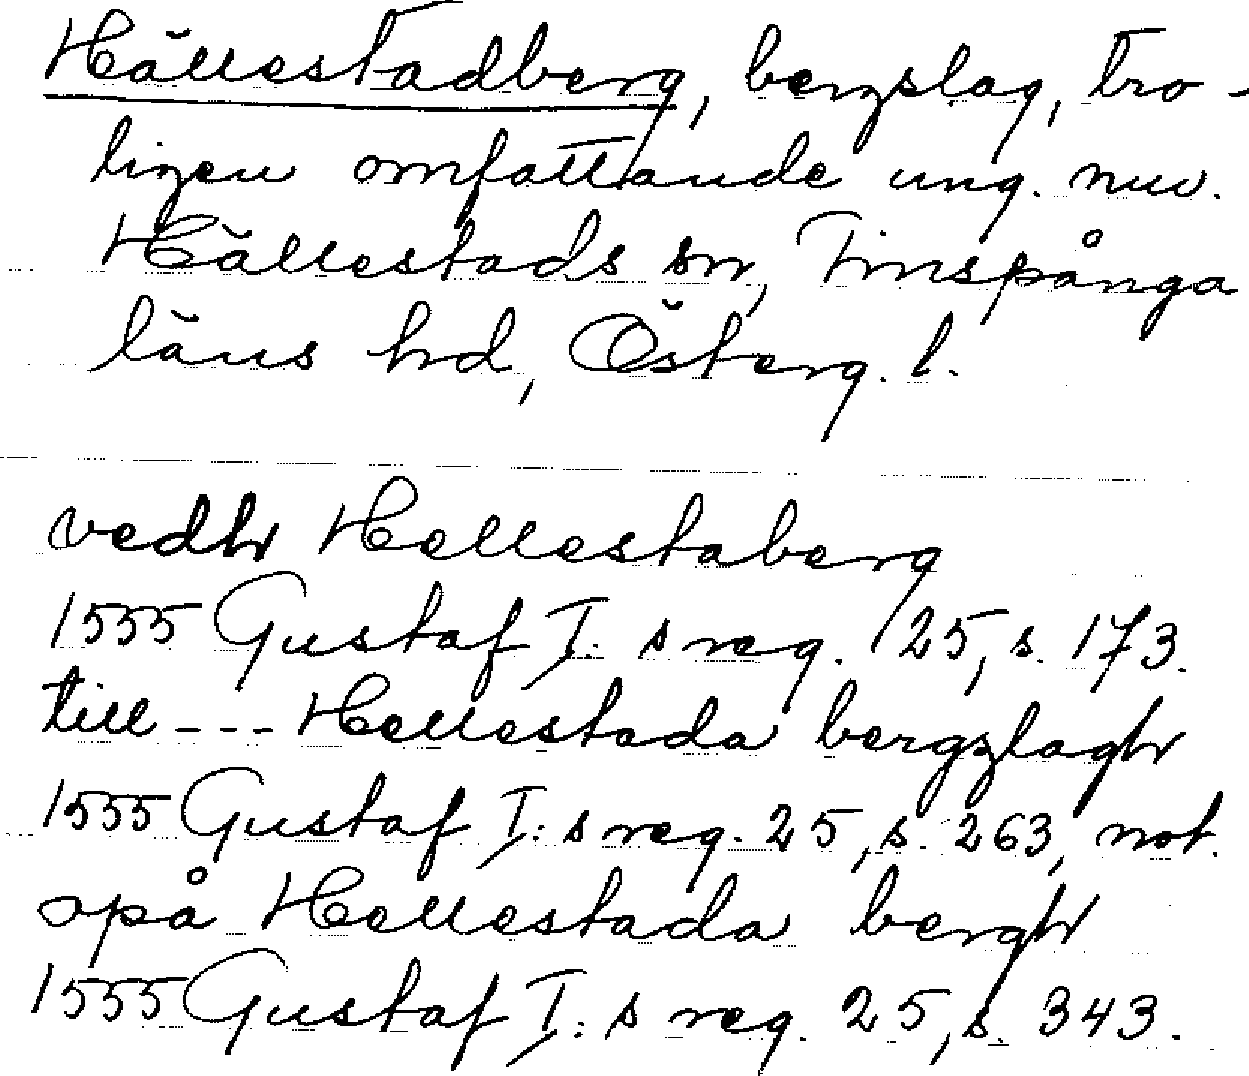 Hällestadberg, bergslag, tro-
ligen omfattande ung. nuv.
Hällestads sn, Finspånga
läns hd, Österg. l.
vedh Hellestaberg
1555 Gustaf I. s reg. 25, s. 173.
till --- Hellestada bergzlagh
1555 Gustaf I: s reg. 25, s. 263, not.
opå Hellestada bergh
1555 Gustaf I: s reg. 25, s. 343.